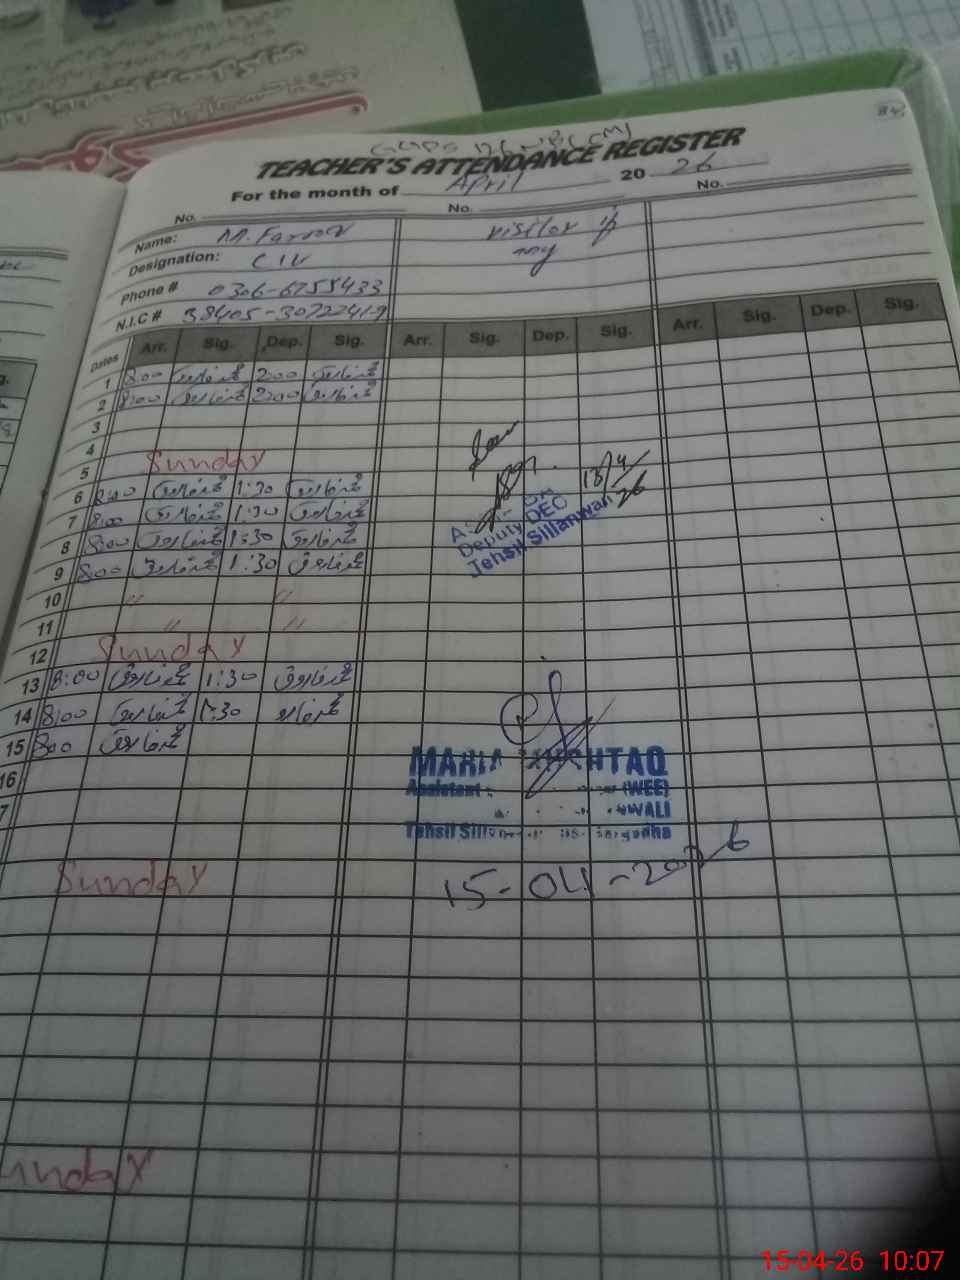 TEACHER'S ATTENDANCE REGISTER
For the month of April 20 26
No. No. No.
Name: M. Farooq visitor if
Designation: any
Phone # 0306-6755433
N.I.C # 38405-3072241-9
Dates Arr. Sig. Dep. Sig. Arr. Sig. Dep. Sig. Arr. Sig. Dep. Sig.
1 8:00 محمد فاروق 2:00 محمد فاروق
2 8:00 محمد فاروق 2:00 محمد فاروق
3
4
5 Sunday
6 8:00 محمد فاروق 1:30 محمد فاروق
7 8:00 محمد فاروق 1:30 محمد فاروق
8 8:00 محمد فاروق 1:30 محمد فاروق
9 8:00 محمد فاروق 1:30 محمد فاروق
10 " "
11 " "
12 Sunday
13 8:00 محمد فاروق 1:30 محمد فاروق
14 8:00 محمد فاروق 1:30 محمد فاروق
15 800 محمد فاروق
16
7
Sunday
Sunday
13/4/26
Deputy DEO
Tehsil Sillanwali
MARIA MUSHTAQ
Assistant (WEE)
Tehsil Sargodha
15-04-2026
15-04-26 10:07